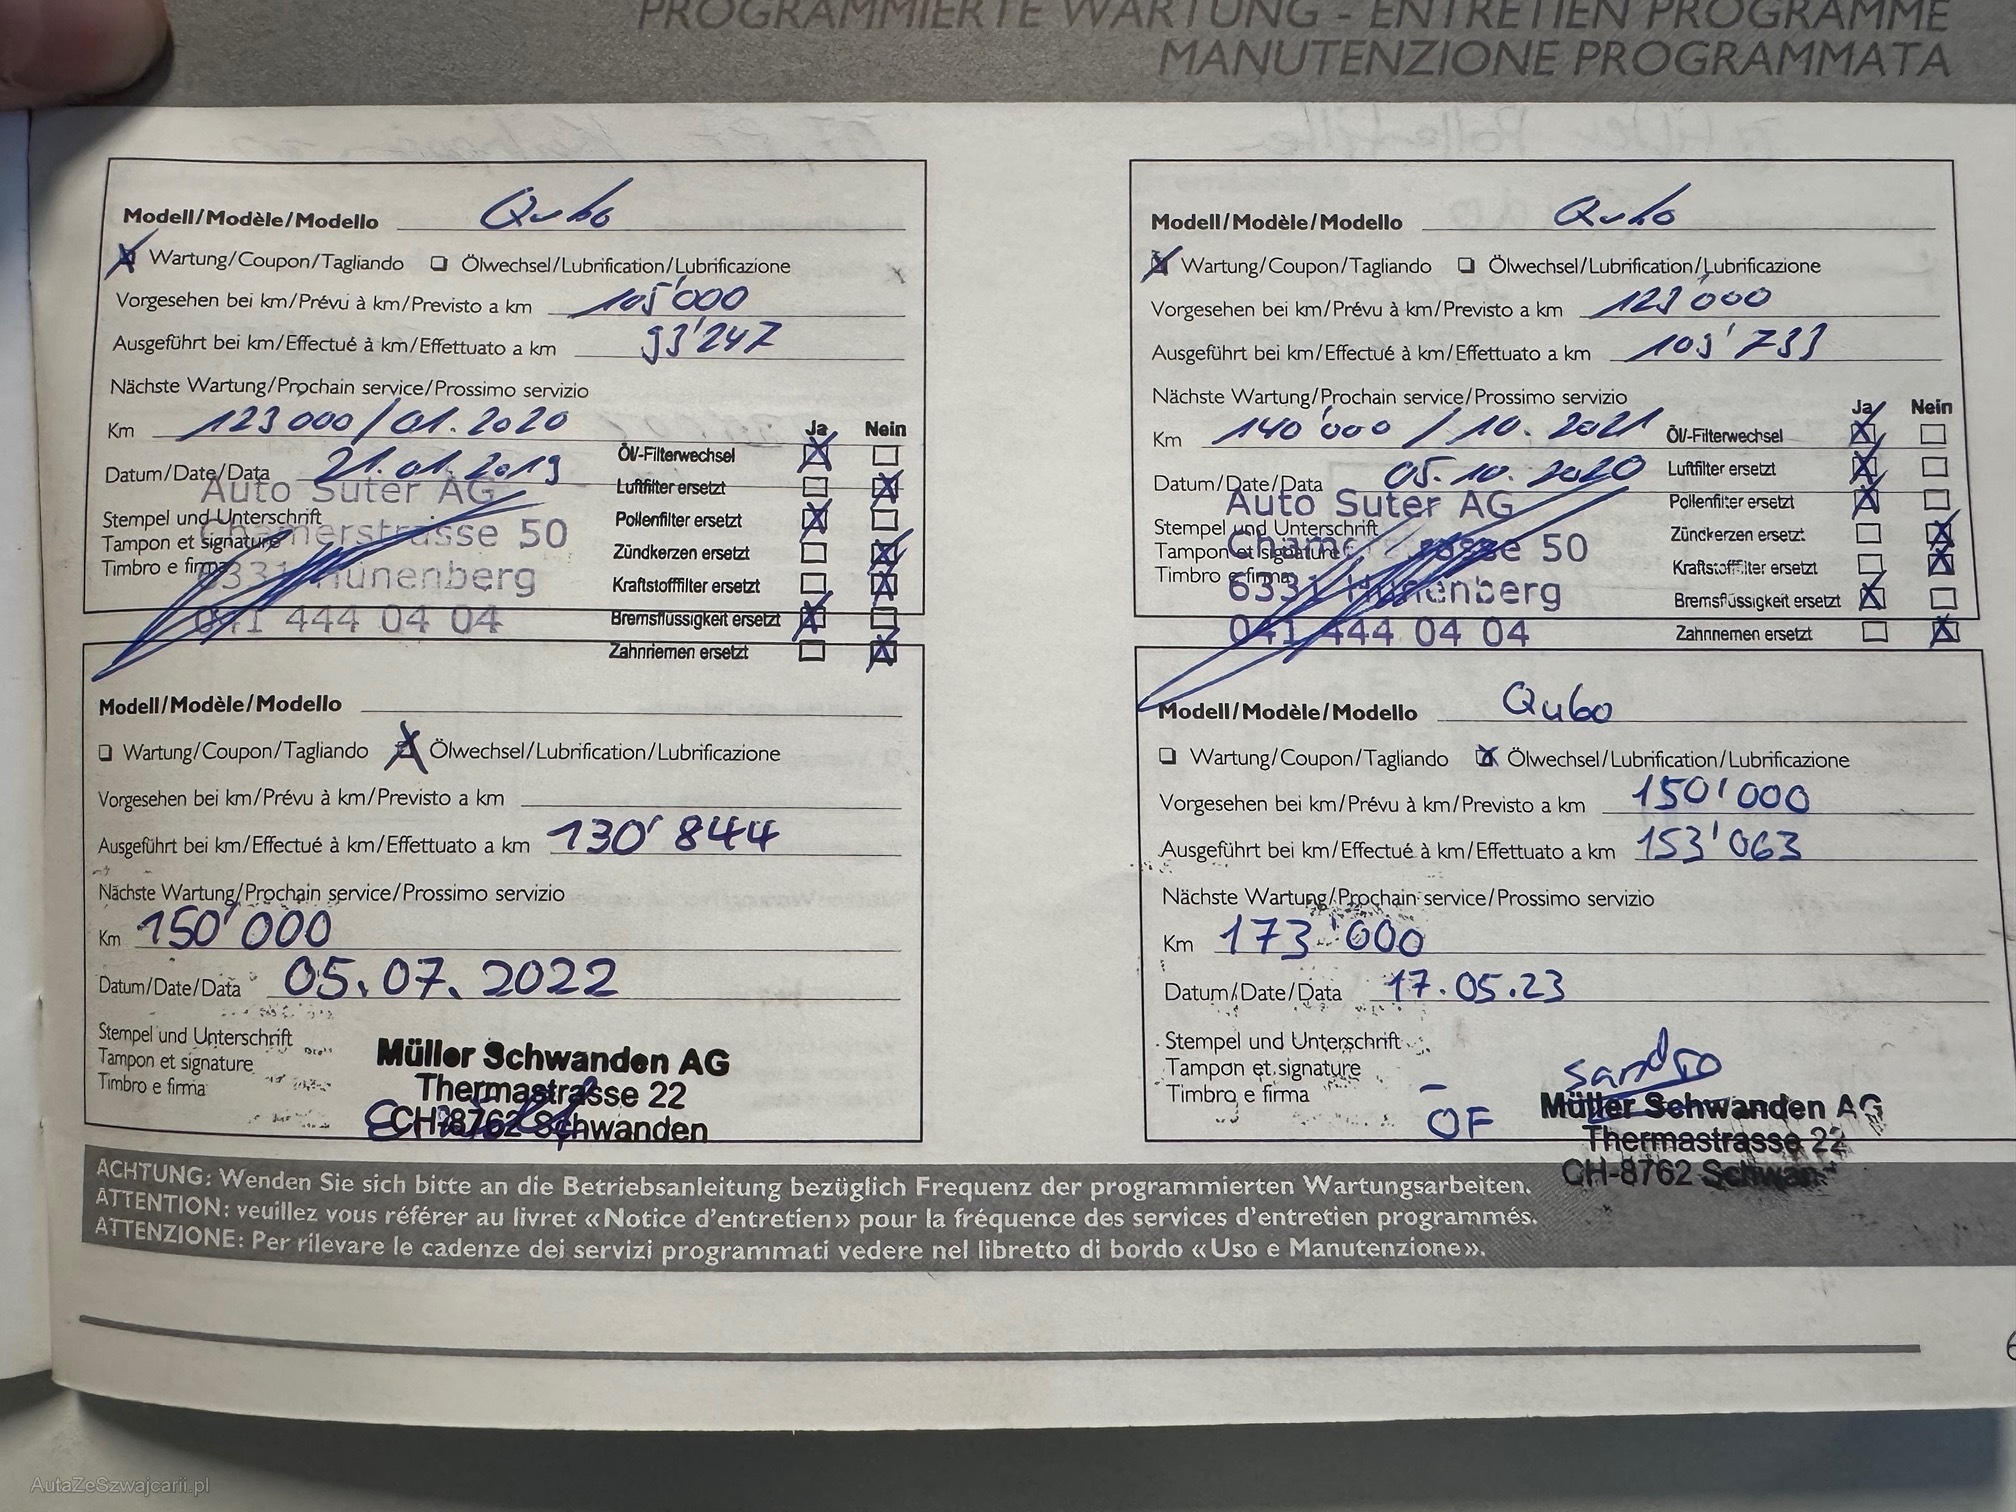 PROGRAMMIERTE WARTUNG - ENTRETIEN PROGRAMME
MANUTENZIONE PROGRAMMATA
Modell/Modèle/Modello Qubo
Wartung/Coupon/Tagliando Ölwechsel/Lubrification/Lubrificazione
Vorgesehen bei km/Prévu à km/Previsto a km 105'000
Ausgeführt bei km/Effectué à km/Effettuato a km 93'247
Nächste Wartung/Prochain service/Prossimo servizio
Km 123000/01.2020
Ja Nein
Datum/Date/Data 21.01.2019
Stempel und Unterschrift
Tampon et signature
Timbro e firma
Auto Suter AG
Chamerstrasse 50
6331 Hünenberg
041 444 04 04
Öl/-Filterwechsel
Luftfilter ersetzt
Pollenfilter ersetzt
Zündkerzen ersetzt
Kraftstofffilter ersetzt
Bremsflüssigkeit ersetzt
Zahnriemen ersetzt
Modell/Modèle/Modello Qubo
Wartung/Coupon/Tagliando Ölwechsel/Lubrification/Lubrificazione
Vorgesehen bei km/Prévu à km/Previsto a km 123'000
Ausgeführt bei km/Effectué à km/Effettuato a km 109'733
Nächste Wartung/Prochain service/Prossimo servizio
Km 140'000 / 10.2021
Ja Nein
Datum/Date/Data 05.10.2020
Stempel und Unterschrift
Tampon et signature
Timbro e firma
Auto Suter AG
Chamerstrasse 50
6331 Hünenberg
041 444 04 04
Öl/-Filterwechsel
Luftfilter ersetzt
Pollenfilter ersetzt
Zündkerzen ersetzt
Kraftstofffilter ersetzt
Bremsflüssigkeit ersetzt
Zahnriemen ersetzt
Modell/Modèle/Modello
Wartung/Coupon/Tagliando Ölwechsel/Lubrification/Lubrificazione
Vorgesehen bei km/Prévu à km/Previsto a km
Ausgeführt bei km/Effectué à km/Effettuato a km 130'844
Nächste Wartung/Prochain service/Prossimo servizio
Km 150'000
Datum/Date/Data 05.07.2022
Stempel und Unterschrift
Tampon et signature
Timbro e firma
Müller Schwanden AG
Thermastrasse 22
CH-8762 Schwanden
Modell/Modèle/Modello Qubo
Wartung/Coupon/Tagliando Ölwechsel/Lubrification/Lubrificazione
Vorgesehen bei km/Prévu à km/Previsto a km 150'000
Ausgeführt bei km/Effectué à km/Effettuato a km 153'063
Nächste Wartung/Prochain service/Prossimo servizio
Km 173'000
Datum/Date/Data 17.05.23
Stempel und Unterschrift
Tampon et signature
Timbro e firma
Sandro
OF
Müller Schwanden AG
Thermastrasse 22
CH-8762 Schwan
ACHTUNG: Wenden Sie sich bitte an die Betriebsanleitung bezüglich Frequenz der programmierten Wartungsarbeiten.
ATTENTION: veuillez vous référer au livret «Notice d'entretien» pour la fréquence des services d'entretien programmés.
ATTENZIONE: Per rilevare le cadenze dei servizi programmati vedere nel libretto di bordo «Uso e Manutenzione».
AutaZeSzwajcarii.pl